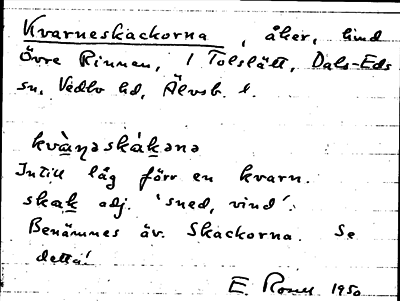 Kvarneskackorna, åker, hmd
Övre Rinnen, 1 Tolslätt, Dals-Eds
sn, Vedbo hd, Älvsb. l.
kvàṇəskákənə
Intill låg förr en kvarn.
skak adj. 'sned, vind'.
Benämnes äv. Skackorna. Se
detta!
E. 1950